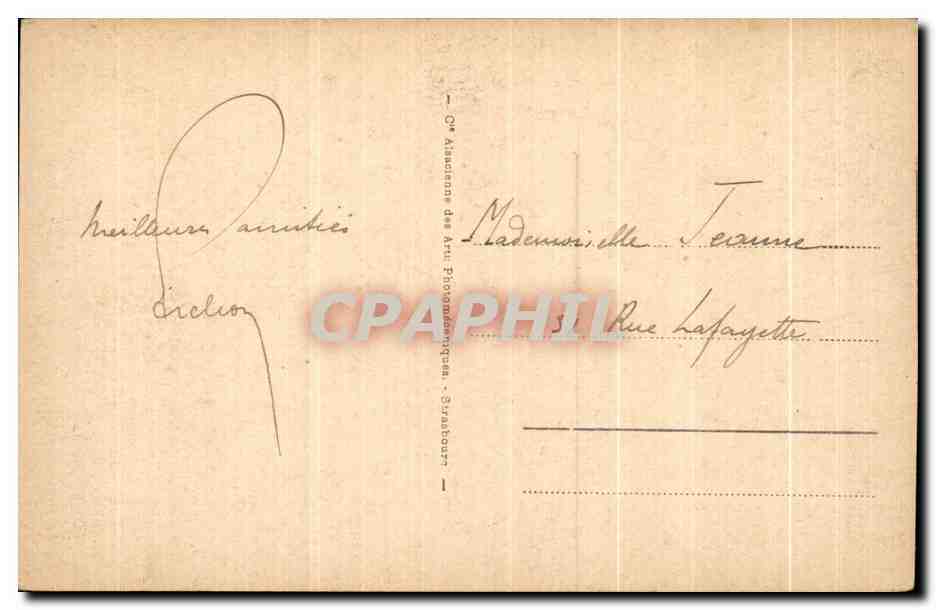 Meilleures amitiés
— Cie Alsacienne des Arts Photomécaniques. - Strasbourg —
Mademoiselle Jeanne
Rue Lafayette
CPAPHIL